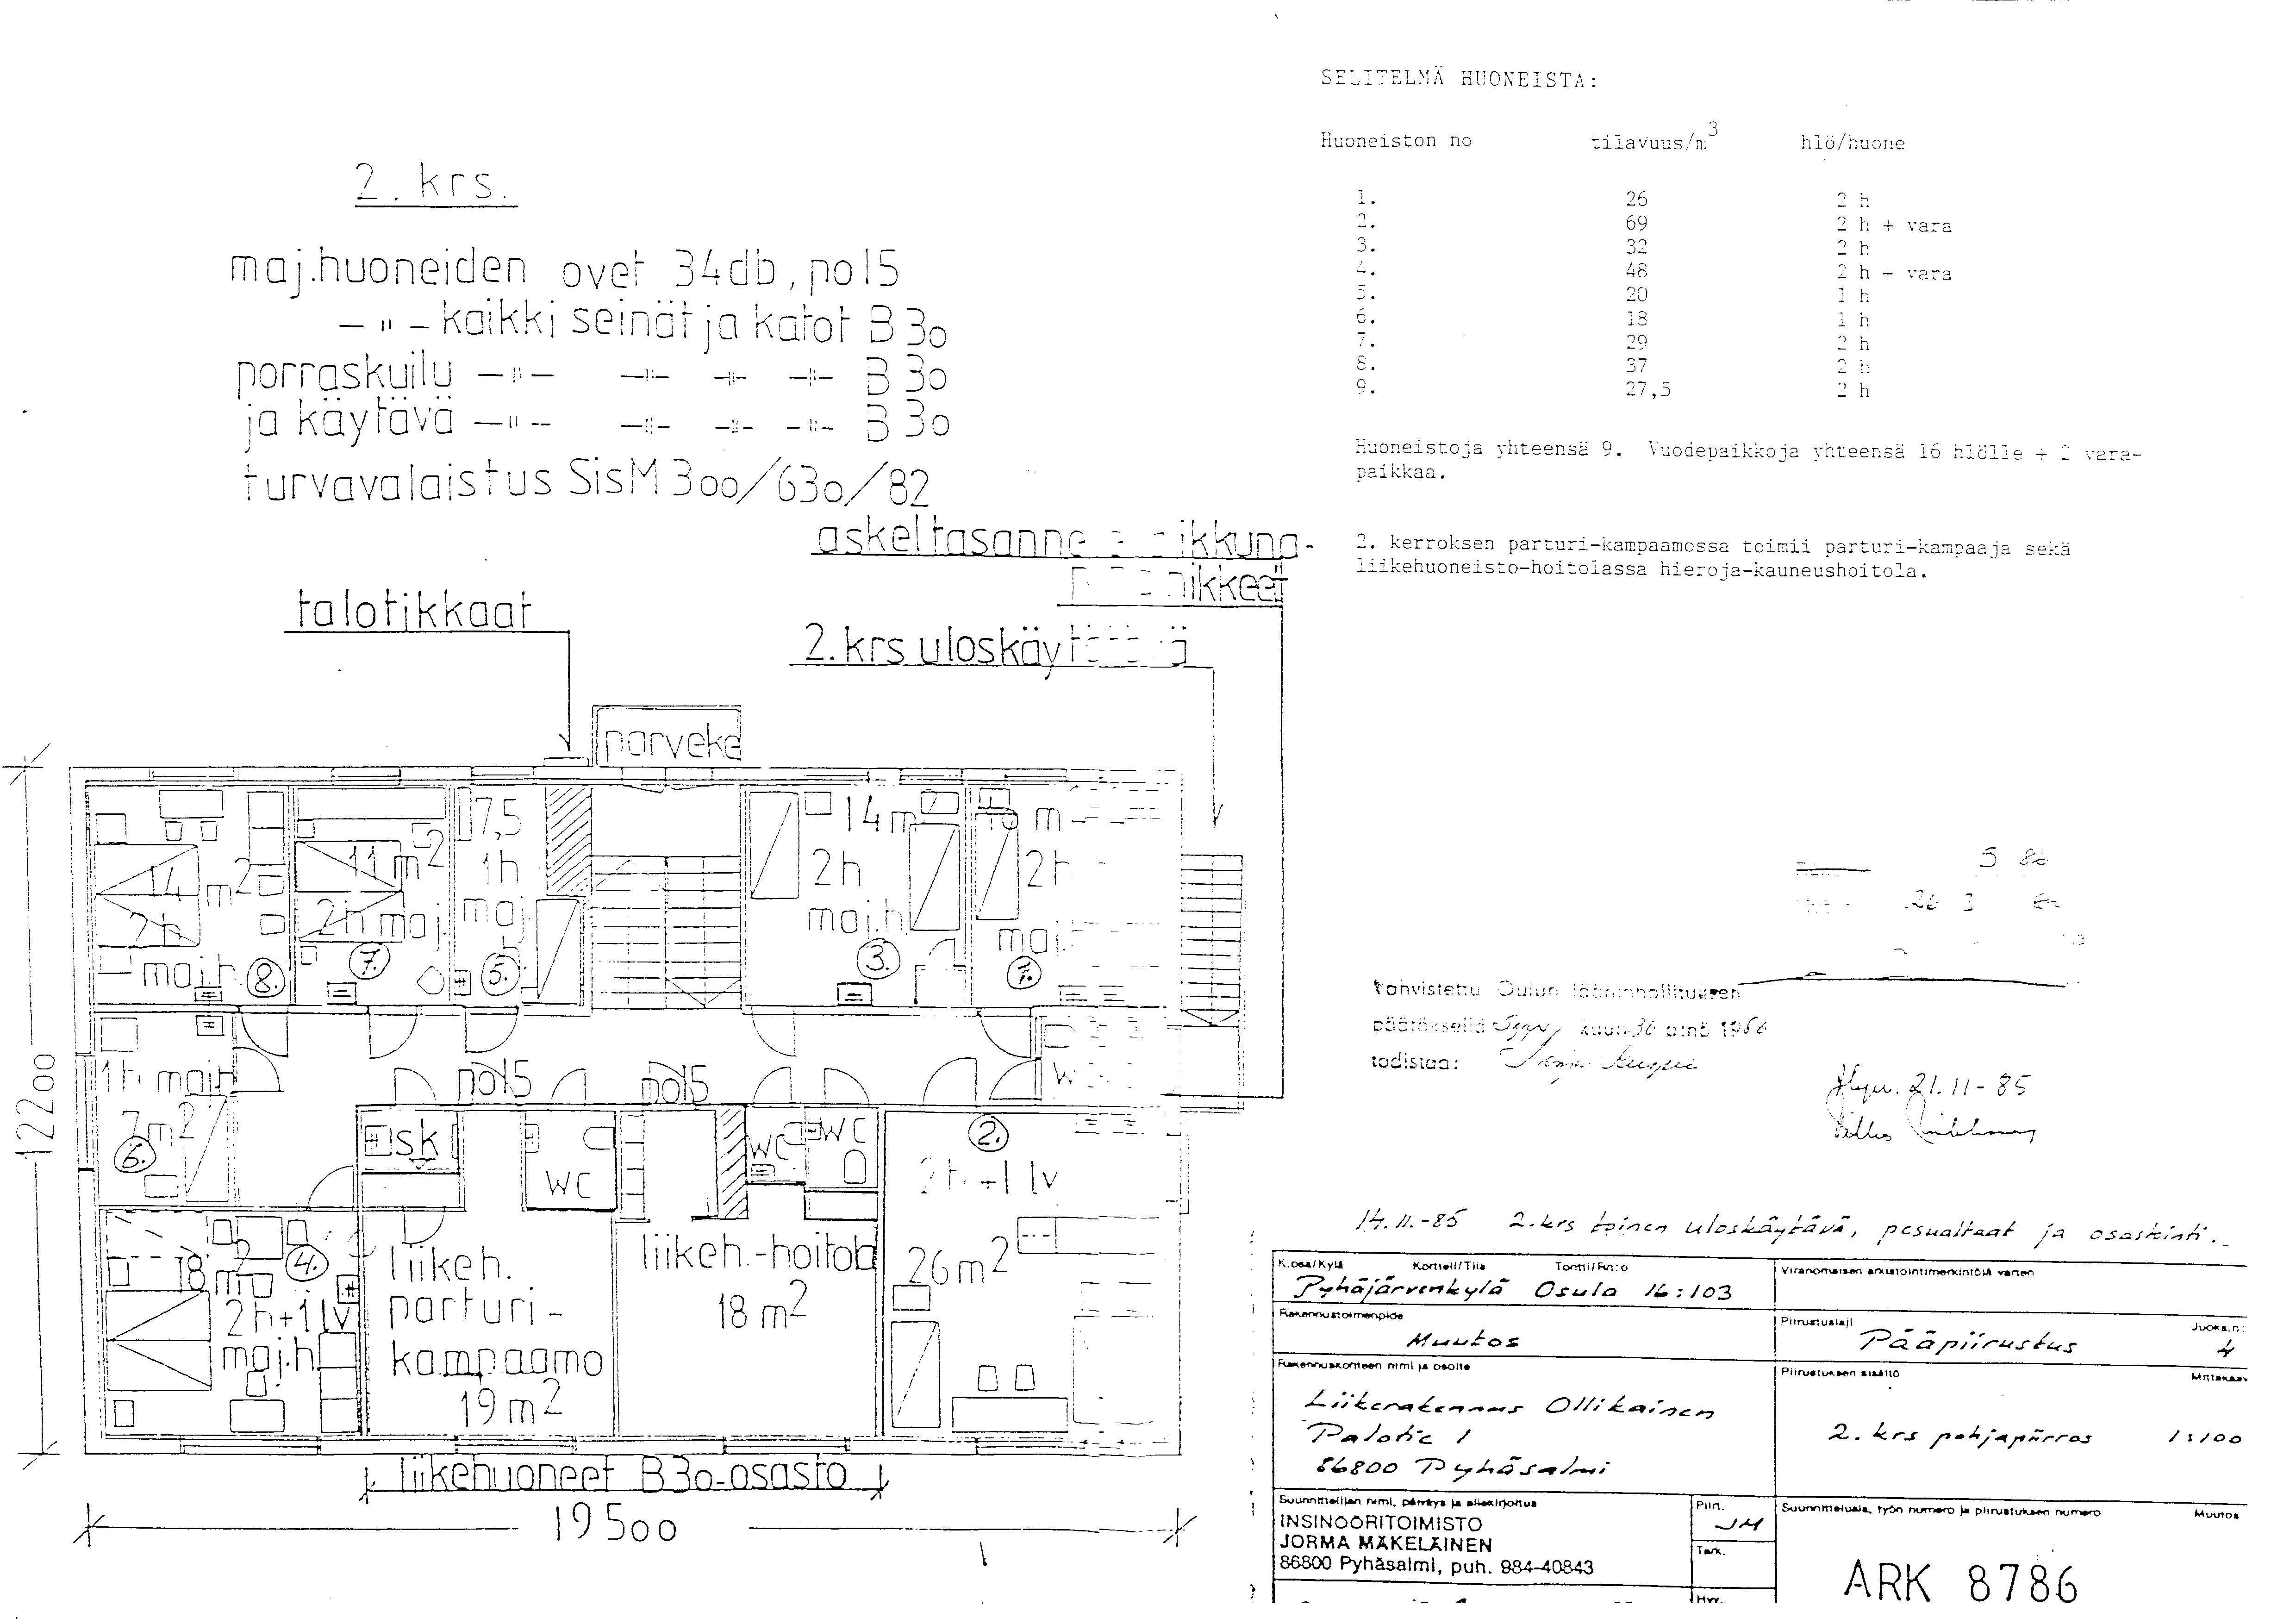 SELITELMÄ HUONEISTA:
Huoneiston no tilavuus/m3 hlö/huone
1. 26 2 h
2. 69 2 h + vara
3. 32 2 h
4. 48 2 h + vara
5. 20 1 h
6. 18 1 h
7. 29 2 h
8. 37 2 h
9. 27,5 2 h
Huoneistoja yhteensä 9. Vuodepaikkoja yhteensä 16 hlölle + 2 vara-
paikkaa.
2. kerroksen parturi-kampaamossa toimii parturi-kampaaja sekä
liikehuoneisto-hoitolassa hieroja-kauneushoitola.
2. krs.
maj.huoneiden ovet 34db, po15
— " — kaikki seinät ja katot B 30
porraskuilu — " — — " — — " — — " — B 30
ja käytävä — " — — " — — " — — " — B 30
turvavalaistus SisM 300/630/82
askeltasanne
talotikkaat
2.krs
parveke
14 m2
2h
maj.h.
8.
11 m2
2h maj.
7.
7,5
1h
maj.
5.
14 m
2h
maj.h.
3.
m
2h
maj.
1h maj.h
7 m2
6.
po15
po15
sk
WC
WC
WC
2.
2h+1 lv
26 m2
18 m2
4.
2h+1 lv
maj.h
liikeh.
parturi-
kampaamo
19 m2
liikeh.-hoitola
18 m2
liikehuoneet B30-osasto
19500
12200
Vahvistettu Oulun lääninhallituksen
päätöksellä kuun 30 p:nä 1986
todistaa:
21.11-85
14.11.-85 2.krs toinen uloskäytävä, pesualtaat ja osastointi.
K.osa/Kylä Kortteli/Tila Tontti/Rn:o
Pyhäjärvenkylä Osula 16:103
Viranomaisen arkistointimerkintöjä varten
Rakennustoimenpide
Muutos
Piirustuslaji Juoks.n:
Pääpiirustus 4
Rakennuskohteen nimi ja osoite
Liikerakennus Ollikainen
Palotie 1
86800 Pyhäsalmi
Piirustuksen sisältö Mittakaav
2. krs pohjapiirros 1:100
Suunnittelijan nimi, päiväys ja allekirjoitus
INSINÖÖRITOIMISTO
JORMA MÄKELÄINEN
86800 Pyhäsalmi, puh. 984-40843
Piirt.
JM
Tark.
Hyv.
Suunnitteluala, työn numero ja piirustuksen numero Muutos
ARK 8786